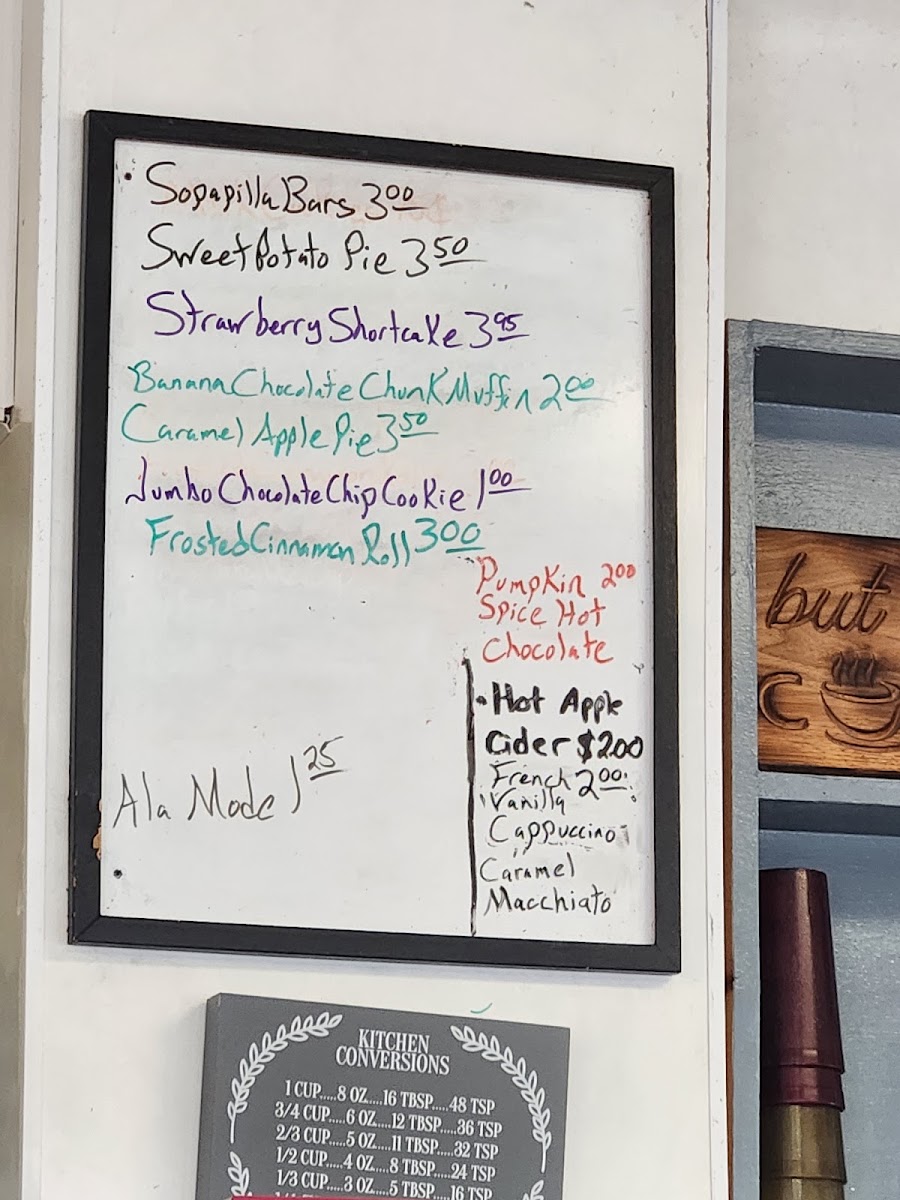 Sopapilla Bars 3.00
Sweet Potato Pie 3.50
Strawberry Shortcake 3.95
Banana Chocolate Chunk Muffin 2.00
Caramel Apple Pie 3.50
Jumbo Chocolate Chip Cookie 1.00
Frosted Cinnamon Roll 3.00
Pumpkin 2.00
Spice Hot
Chocolate
Hot Apple
Cider $2.00
French 2.00
Vanilla
Cappuccino
Caramel
Macchiato
Ala Mode 1.25
but
C
KITCHEN
CONVERSIONS
1 CUP.....8 OZ....16 TBSP.....48 TSP
3/4 CUP....6 OZ....12 TBSP....36 TSP
2/3 CUP....5 OZ....11 TBSP....32 TSP
1/2 CUP....4 OZ....8 TBSP....24 TSP
1/3 CUP....3 OZ....5 TBSP....16 TSP